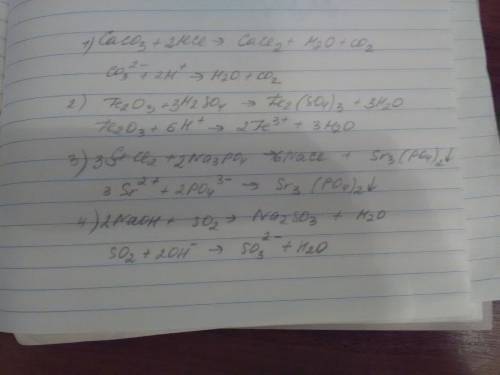 1) CaCO3 + 2HCl → CaCl2 + H2O + CO2
CO3 2- + 2H+ → H2O + CO2
2) Fe2O3 + 3H2SO4 → Fe2(SO4)3 + 3H2O
Fe2O3 + 6H+ → 2Fe3+ + 3H2O
3) 3SrCl2 + 2Na3PO4 → 6NaCl + Sr3(PO4)2↓
3Sr2+ + 2PO4 3- → Sr3(PO4)2↓
4) 2NaOH + SO2 → Na2SO3 + H2O
SO2 + 2OH- → SO3 2- + H2O